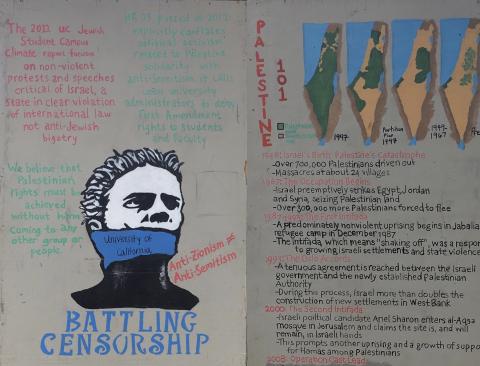 The 2012 UC Jewish
Student Campus
Climate report focuses
on non-violent
protests and speeches
critical of Israel, a
state in clear violation
of international law
not anti-Jewish
bigotry
HR 35 passed in 2012
explicitly conflates
political activism
related to Palestine
solidarity with
anti-Semitism. It calls
upon university
administrators to deny
First Amendment
rights to students
and faculty
We believe that
Palestinian
rights must be
achieved
without harm
coming to any
other group of
people.
University of
California
Anti-Zionism ≠
Anti-Semitism
BATTLING
CENSORSHIP
PALESTINE
101
1947
Partition
Plan
1947
1949-
1967
1948: Israel's Birth, Palestine's Catastrophe
-Over 700,000 Palestinians driven out
-Massacres at about 24 villages
1967: The Occupation Begins
-Israel preemptively strikes Egypt, Jordan
and Syria, seizing Palestinian land
-Over 300,000 more Palestinians forced to flee
1987-1993: The First Intifada
-A predominately nonviolent uprising begins in Jabalia
refugee camp in December 1987
-The intifada, which means "shaking off", was a respon
to growing Israeli settlements and state violence
1993: The Oslo Accords
-A tenuous agreement is reached between the Israeli
government and the newly established Palestinian
Authority
-During this process, Israel more than doubles the
construction of new settlements in West Bank
2000: The Second Intifada
-Israeli political candidate Ariel Sharon enters al-Aqsa
mosque in Jerusalem and claims the site is, and will
remain, in Israeli hands
-This prompts another uprising and a growth of suppo
for Hamas among Palestinians
2008: Operation Cast Lead